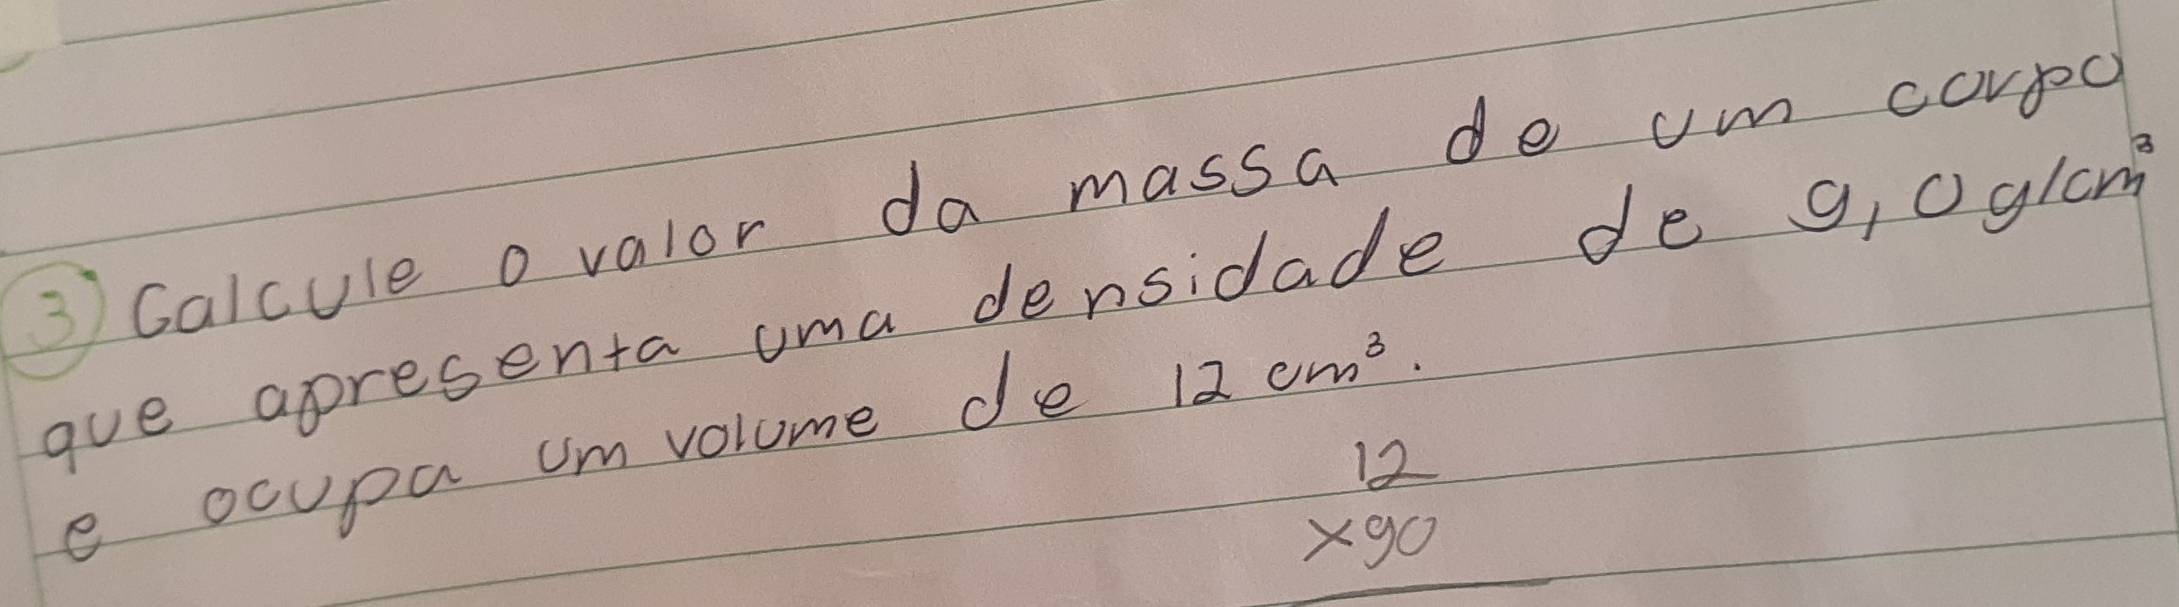 3) Calcule o valor da massa de um corpo
que apresenta uma densidade de 9,0g/cm³
e ocupa um volume de 12 cm³.
12
x90